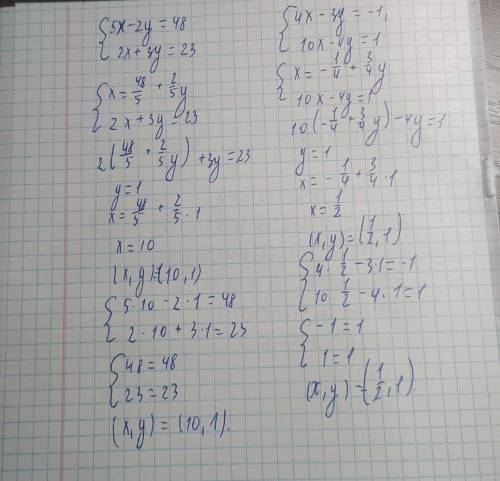 5x-2y=48
2x+3y=23
x=48/5+2/5y
2x+3y=23
2(48/5+2/5y)+3y=23
y=1
x=48/5+2/5·1
x=10
(x,y)=(10,1)
5·10-2·1=48
2·10+3·1=23
48=48
23=23
(x,y)=(10,1).
4x-3y=-1,
10x-4y=1
x=-1/4+3/4y
10x-4y=1
10(-1/4+3/4y)-4y=1
y=1
x=-1/4+3/4·1
x=1/2
(x,y)=(1/2,1)
4·1/2-3·1=-1
10·1/2-4·1=1
-1=1
1=1
(x,y)=(1/2,1)